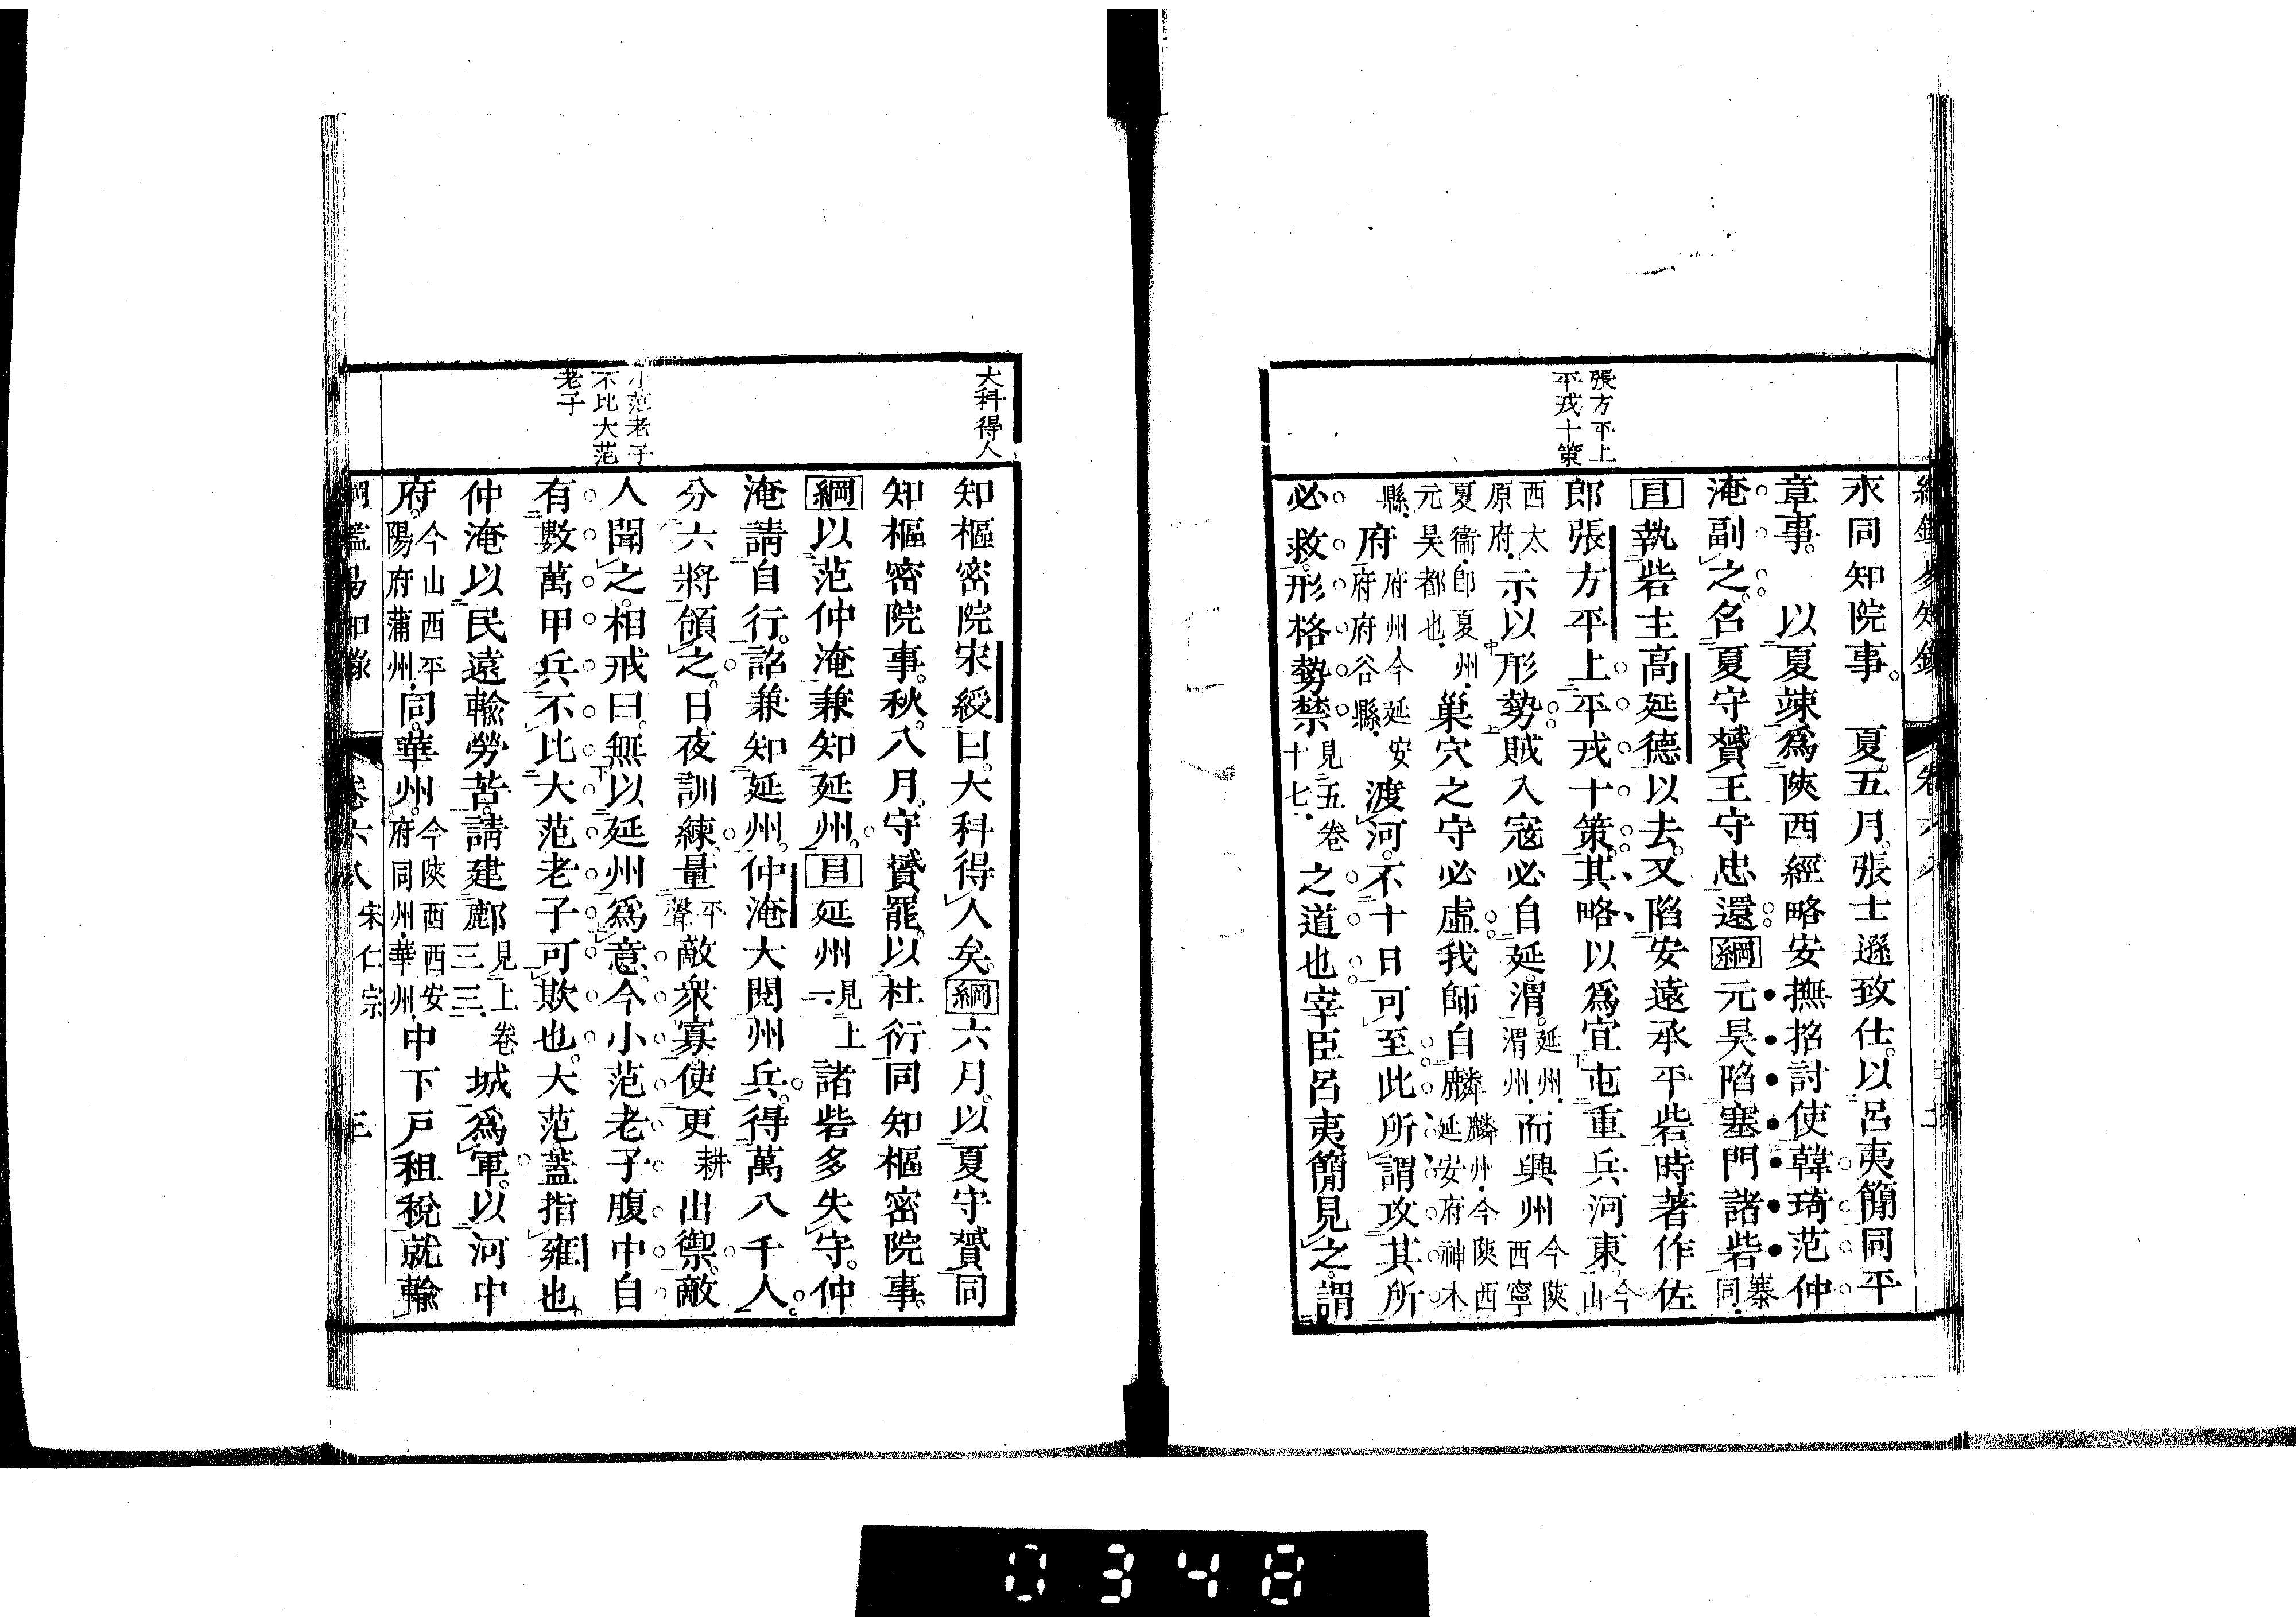 張方平上
平戎十策
永同知院事。夏。五月。張士遜致仕。以呂夷簡同平
章事。以夏竦爲陝西經略安撫招討使韓琦范仲
淹副之。名夏守贇王守忠還綱元昊陷塞門諸砦寨同
目執砦主高延德以去。又陷安遠承平砦。時著作佐
郎張方平上平戎十策。其略以爲宜屯重兵河東。今山
西太原府。示以形勢賊入寇必自延渭。延州渭州。而興州今陝西寧
夏衞。卽夏州。元昊都也。巢穴之守必虛我師自麟麟州。今陝西延安府神木
縣。府府州今延安府府谷縣。渡河。不十日可至此所謂攻其所
必救。形格勢禁見五卷十七。之道也宰臣呂夷簡見之。謂
大科得人
小范老子
不比大范
老子
知樞密院宋綬曰。大科得人矣。綱六月。以夏守贇同
知樞密院事。秋。八月。守贇罷。以杜衍同知樞密院事。
綱以范仲淹兼知延州。目延州見上一。諸砦多失守。仲
淹請自行。詔兼知延州。仲淹大閱州兵。得萬八千人。
分六將領之。日夜訓練。量平聲敵衆寡。使更耕出禦。敵
人聞之。相戒曰。無以延州爲意。今小范老子腹中自
有數萬甲兵。不比大范老子可欺也。大范蓋指雍也。
仲淹以民遠輸勞苦。請建鄜見上卷三三。城爲軍。以河中
府。今山西平陽府蒲州。同。華州。今陝西西安府同州。華州。中下戸租稅就輸
綱鑑易知錄 卷六八 宋仁宗 三